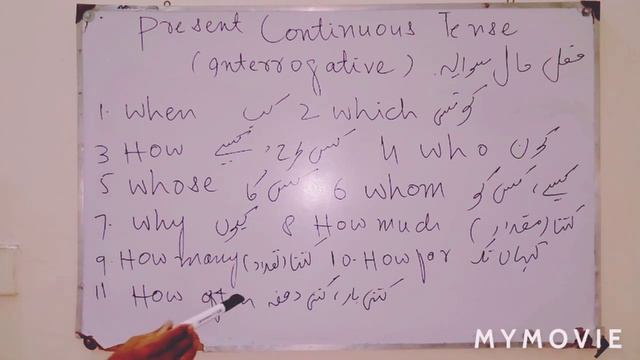 Present Continuous Tense
(Interrogative) فعل حال سوالیہ
1. When کب 2 which کونسی
3 How کیسے، کس طرح 4 who کون
5 whose کس کا 6 whom کسے، کس کو
7. why کیوں 8 How much کتنا (مقدار)
9. How many کتنا (تعداد) 10. How far کہاں تک
11 How کتنی بار، کتنی دفعہ
MYMOVIE